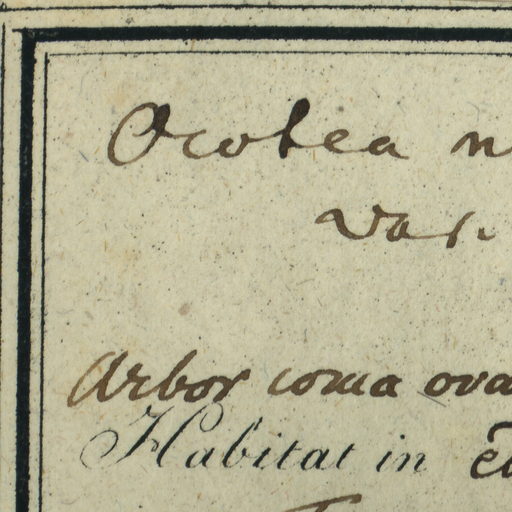 Ocotea n
var.
Arbor coma ova
Habitat in